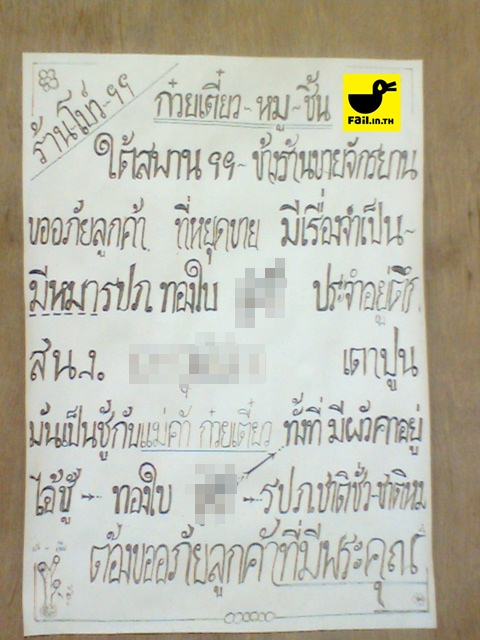 ร้านโบ๋ว-๑๑
ก๋วยเตี๋ยว-หมู-ชิ้น
FAIL.IN.TH
ใต้สพาน ๑๑- ข้างร้านขายจักรยาน
ขออภัยลูกค้า ที่หยุดขาย มีเรื่องจำเป็น-
มีหมารปภ ทองใบ ประจำอยู่ตึก
สน.ง. เตาปูน
มันเป็นชู้กับแม่ค้า ก๋วยเตี๋ยว ทั้งที่ มีผัวคาอยู่
ไอ้ชู้ → ทองใบ → รปภชาติชั่ว-ชาติหมา
ต้องขออภัยลูกค้าที่มีพระคุณ